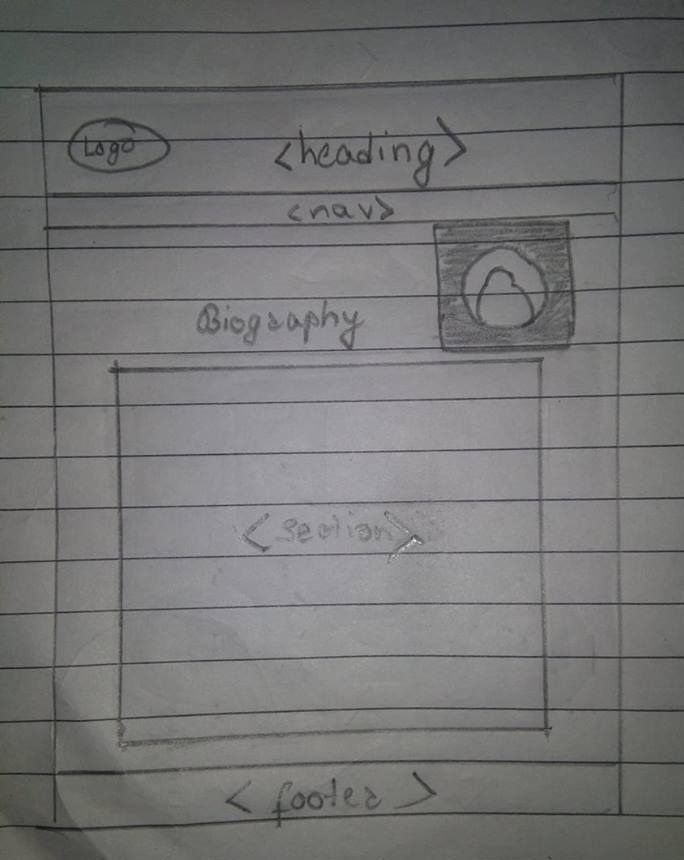 Logo
<heading>
<nav>
Biography
<section>
<footer>